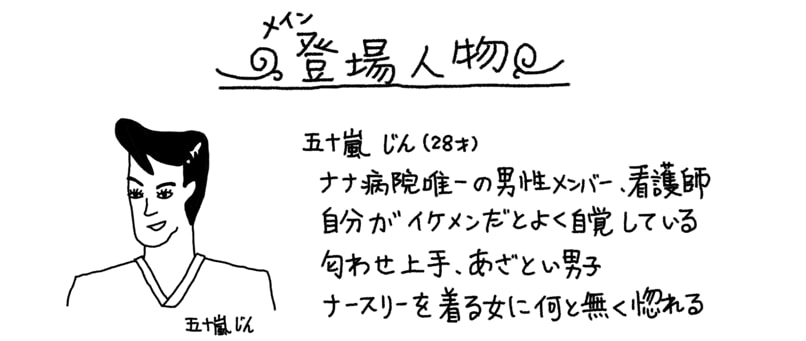 メイン
登場人物
五十嵐 じん (28才)
ナナ病院唯一の男性メンバー、看護師
自分がイケメンだとよく自覚している
匂わせ上手、あざとい男子
ナースリーを着る女に何と無く惚れる
五十嵐 じん